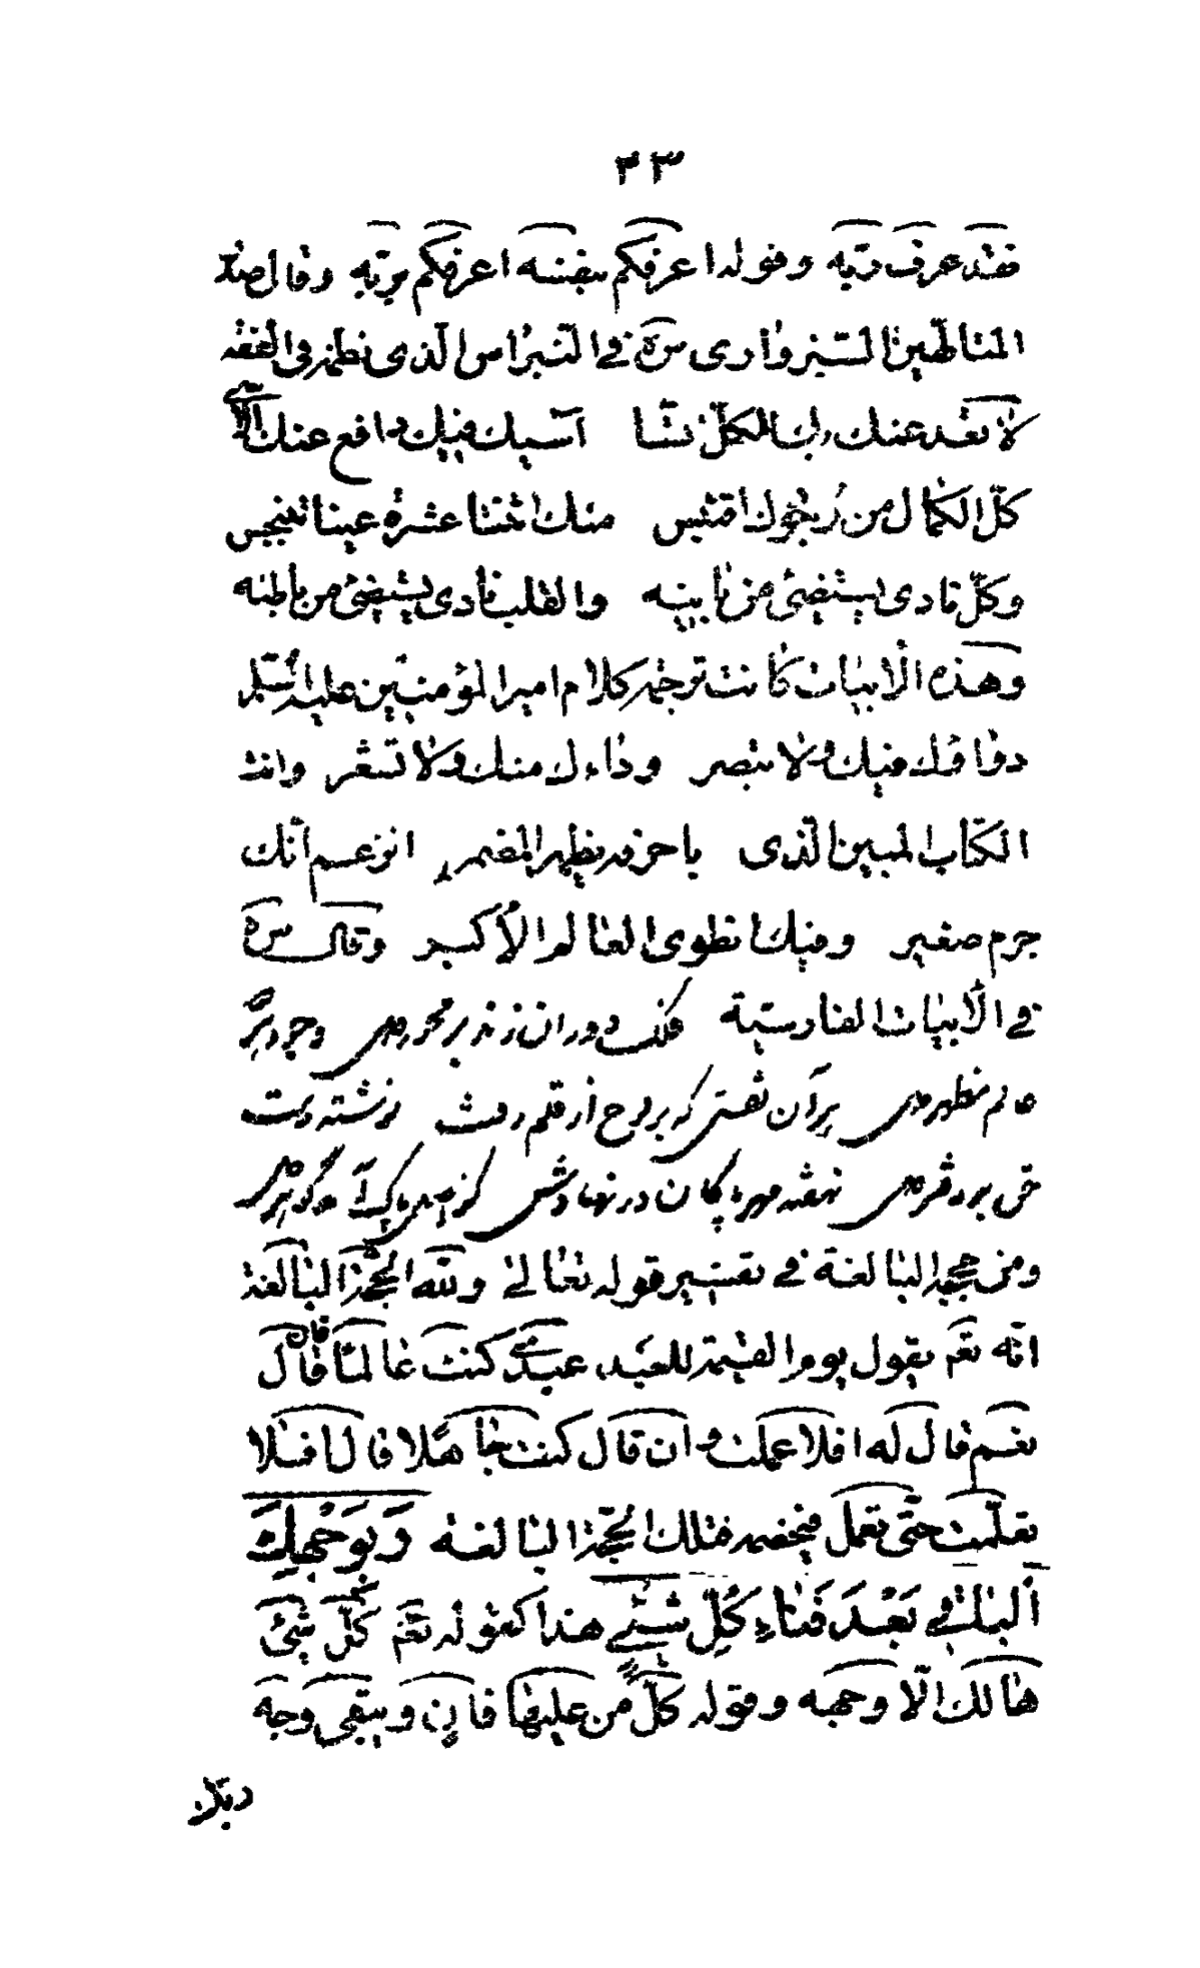 ٣٣
فقد عرف ربّه وقوله اعرفكم بنفسه اعرفكم بربّه وقال صدر
المتالّهين السّبزوارى سرّه فى النّبراس الّذى نظمه فى الفقه
لا تعد عنك ربنا لكلّ نشا آسيك فيك دافع عنك الاسى
كلّ الكمال من اقتبس منك اثنتا عشرة عينا تنبجس
وكلّ نادى يستضئ من والقلب نادى يستضئ من باطنه
وهذه الابيات كانت ترجمه كلام امير المؤمنين عليه السّلم
دواؤك فيك ولا تبصر وداءك منك ولا تشعر وانت
الكتاب المبين الّذى باحرفه يظهر المضمر اتزعم انّك
جرم صغير وفيك انطوى العالم الأكبر وقال سرّه
فى الأبيات الفارسيّة فلك دوران زند بر محور دل وجود هر
عالم مظهر دل بر آن نقشى كه بر لوح از قلم رفت نوشته دست
حق بر دفتر دل نهفته مهر پاكان در نهادش گوهر دل
ومن حججه البالغة فى تفسير قوله تعالى وللّه الحجّة البالغة
انّه تعم يقول يوم القيمة للعبد، عبدى كنت عالمًا فان قال
نعم قال له افلا عملت وان قال كنت جاهلا قال افلا
تعلّمت حتّى تعمل فيخصمه فتلك الحجّة البالغة وَبِوَجْهِكَ
اَلباقى بَعْدَ فَناءِ كُلِّ شَئْيءٍ هذا كقوله تعم كلّ شئ
هالك الّا وجهه وقوله كلّ من عليها فانٍ ويبقى وجه
ربّك